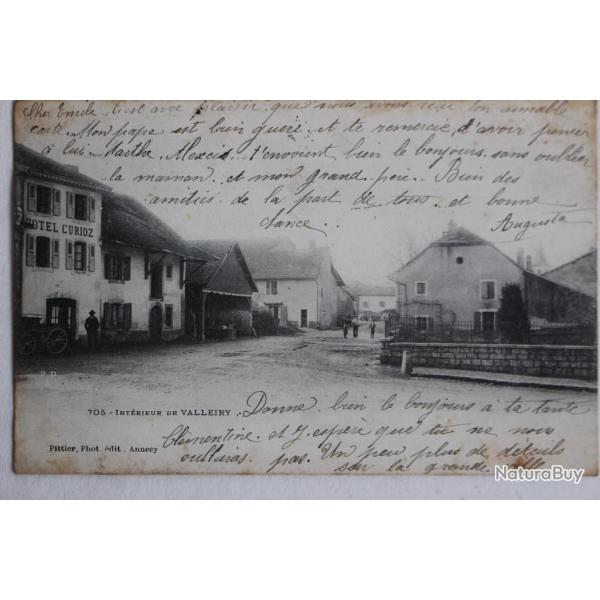 Cher Emile. C'est avec plaisir que nous avons reçu ton aimable
carte. Mon papa est bien gueri. et te remercie, d'avoir penser
à lui. Marthe Alexis. t'envoient bien le bonjours. sans oublier
la maman. et mon grand, père. Bien des
amitiés de la part de tous. et bonne
chance.
Augusta
HOTEL CURIOZ
HOTEL CURIOZ
705 - INTÉRIEUR DE VALLEIRY
Donne. bien le bonjours à ta tante
Pittier, Phot. édit., Annecy
Clémentine. et J'espère que tu ne nous
oublieras pas. Un peu plus de détails
sur la grande
NaturaBuy